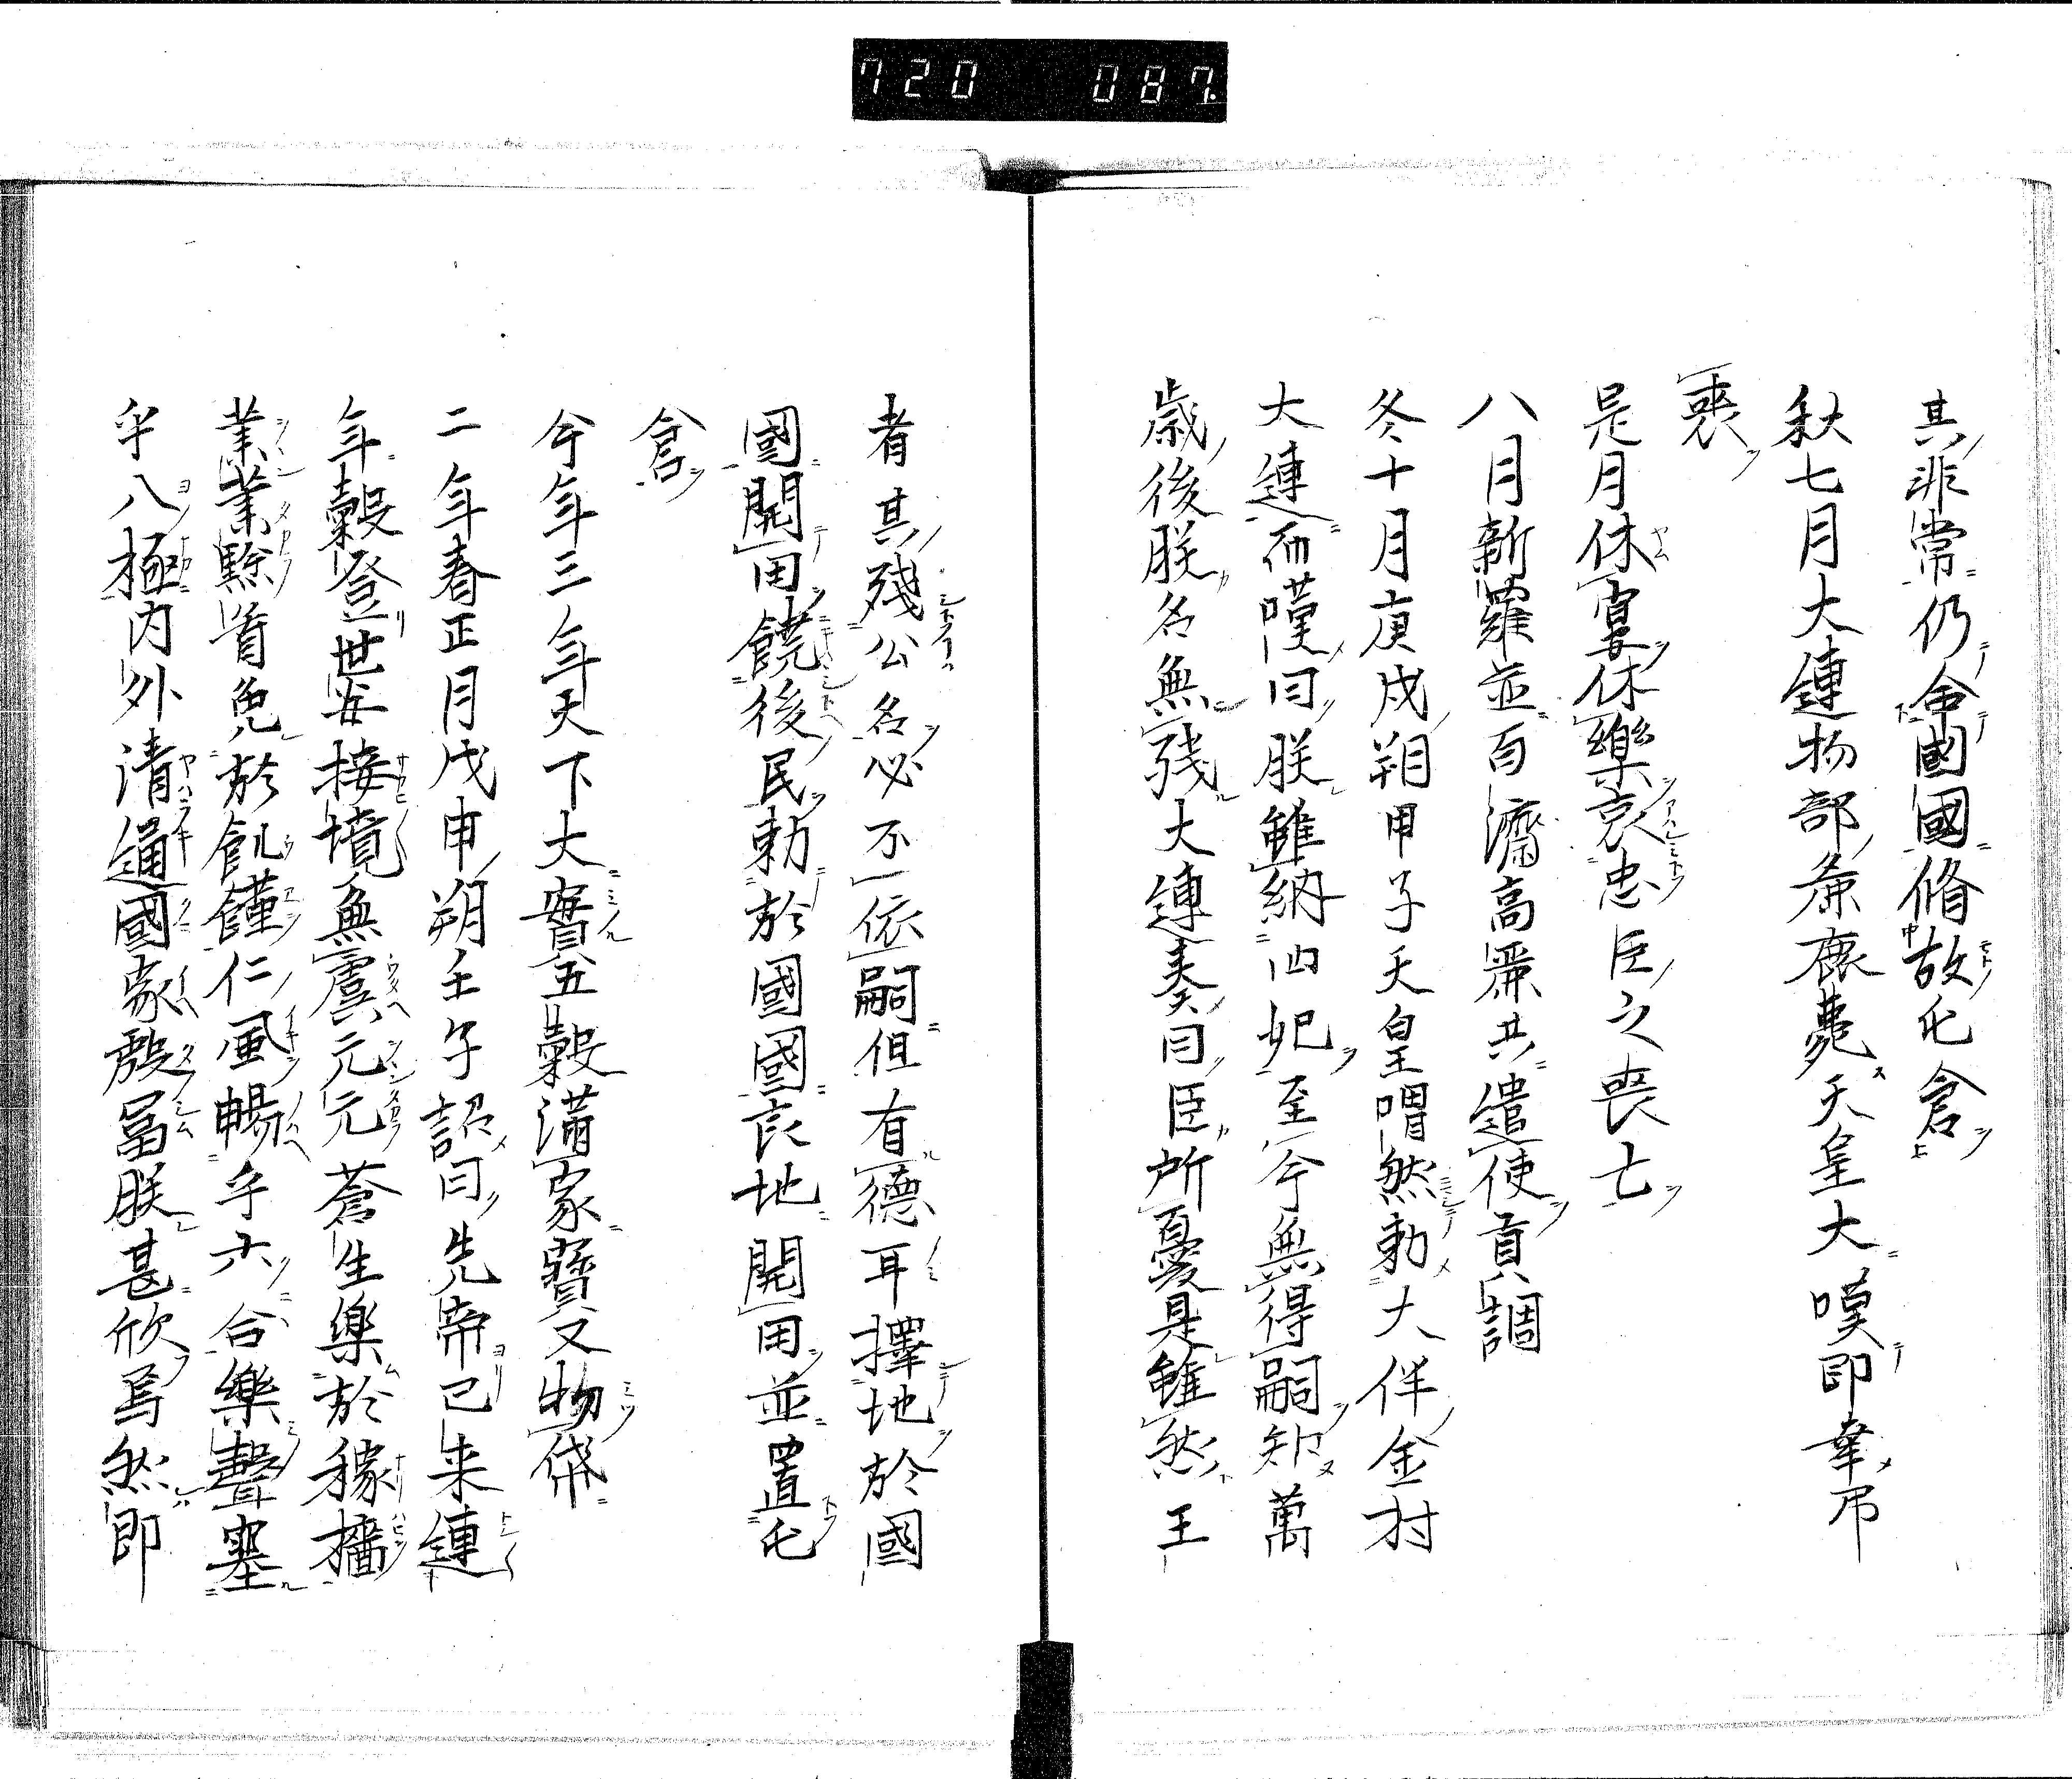 720 087
其非常仍命國國脩故屯倉
秋七月大連物部麁鹿薨天皇大嘆即幸吊
喪
是月休宴休樂哀忠臣之喪亡
八月新羅並百濟高麗共遣使貢調
冬十月庚戌朔甲子天皇喟然勅大伴金村
大連而嘆曰朕雖納四妃至今無得嗣知萬
歲後朕名無殘大連奏曰臣所憂是雖然王
者其殘公名必不依嗣但有德耳擇地於國
國開田饒後民勅於國國良地開田並置屯
倉
今年三年天下大實五穀滿家寶又物俗
二年春正月戊申朔壬子詔曰先帝已来連
年穀登世安接境無虞元元蒼生樂於稼播
業業黔首免於飢饉仁風暢乎六合樂聲塞
乎八極内外清通國家殷冨朕甚欣焉然即